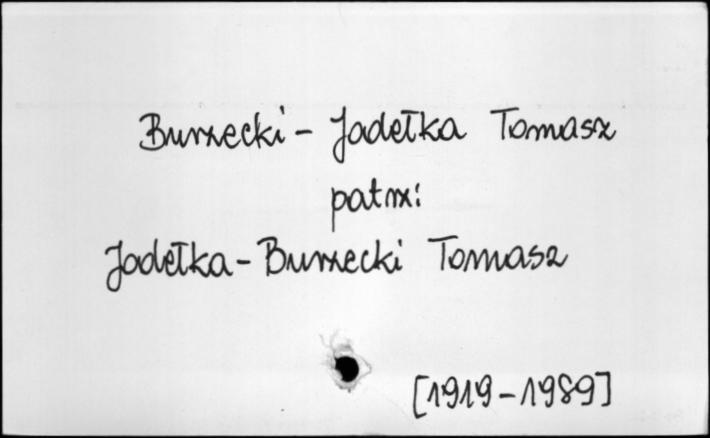 Burzecki - Jadełka Tomasz
patrz:
Jadełka - Burzecki Tomasz
[1919-1989]